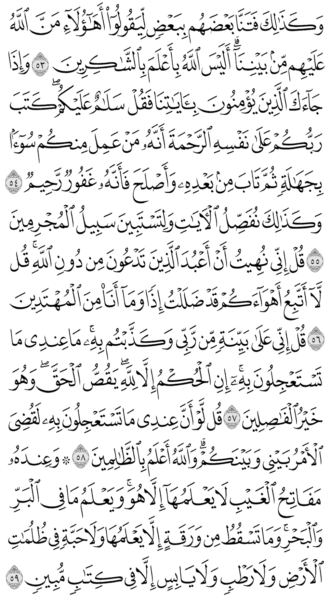 وَكَذَٰلِكَ فَتَنَّا بَعْضَهُم بِبَعْضٍ لِّيَقُولُوٓا۟ أَهَٰٓؤُلَآءِ مَنَّ ٱللَّهُ
عَلَيْهِم مِّنۢ بَيْنِنَآ ۗ أَلَيْسَ ٱللَّهُ بِأَعْلَمَ بِٱلشَّٰكِرِينَ ٥٣ وَإِذَا
جَآءَكَ ٱلَّذِينَ يُؤْمِنُونَ بِـَٔايَٰتِنَا فَقُلْ سَلَٰمٌ عَلَيْكُمْ ۖ كَتَبَ
رَبُّكُمْ عَلَىٰ نَفْسِهِ ٱلرَّحْمَةَ ۖ أَنَّهُۥ مَنْ عَمِلَ مِنكُمْ سُوٓءًۢا
بِجَهَٰلَةٍ ثُمَّ تَابَ مِنۢ بَعْدِهِۦ وَأَصْلَحَ فَأَنَّهُۥ غَفُورٌ رَّحِيمٌ ٥٤
وَكَذَٰلِكَ نُفَصِّلُ ٱلْـَٔايَٰتِ وَلِتَسْتَبِينَ سَبِيلُ ٱلْمُجْرِمِينَ
٥٥ قُلْ إِنِّى نُهِيتُ أَنْ أَعْبُدَ ٱلَّذِينَ تَدْعُونَ مِن دُونِ ٱللَّهِ ۚ قُل
لَّآ أَتَّبِعُ أَهْوَآءَكُمْ ۙ قَدْ ضَلَلْتُ إِذًا وَمَآ أَنَا۠ مِنَ ٱلْمُهْتَدِينَ
٥٦ قُلْ إِنِّى عَلَىٰ بَيِّنَةٍ مِّن رَّبِّى وَكَذَّبْتُم بِهِۦ ۚ مَا عِندِى مَا
تَسْتَعْجِلُونَ بِهِۦٓ ۚ إِنِ ٱلْحُكْمُ إِلَّا لِلَّهِ ۖ يَقُصُّ ٱلْحَقَّ ۖ وَهُوَ
خَيْرُ ٱلْفَٰصِلِينَ ٥٧ قُل لَّوْ أَنَّ عِندِى مَا تَسْتَعْجِلُونَ بِهِۦ لَقُضِىَ
ٱلْأَمْرُ بَيْنِى وَبَيْنَكُمْ ۗ وَٱللَّهُ أَعْلَمُ بِٱلظَّٰلِمِينَ ٥٨ ۞ وَعِندَهُۥ
مَفَاتِحُ ٱلْغَيْبِ لَا يَعْلَمُهَآ إِلَّا هُوَ ۚ وَيَعْلَمُ مَا فِى ٱلْبَرِّ
وَٱلْبَحْرِ ۚ وَمَا تَسْقُطُ مِن وَرَقَةٍ إِلَّا يَعْلَمُهَا وَلَا حَبَّةٍ فِى ظُلُمَٰتِ
ٱلْأَرْضِ وَلَا رَطْبٍ وَلَا يَابِسٍ إِلَّا فِى كِتَٰبٍ مُّبِينٍ ٥٩